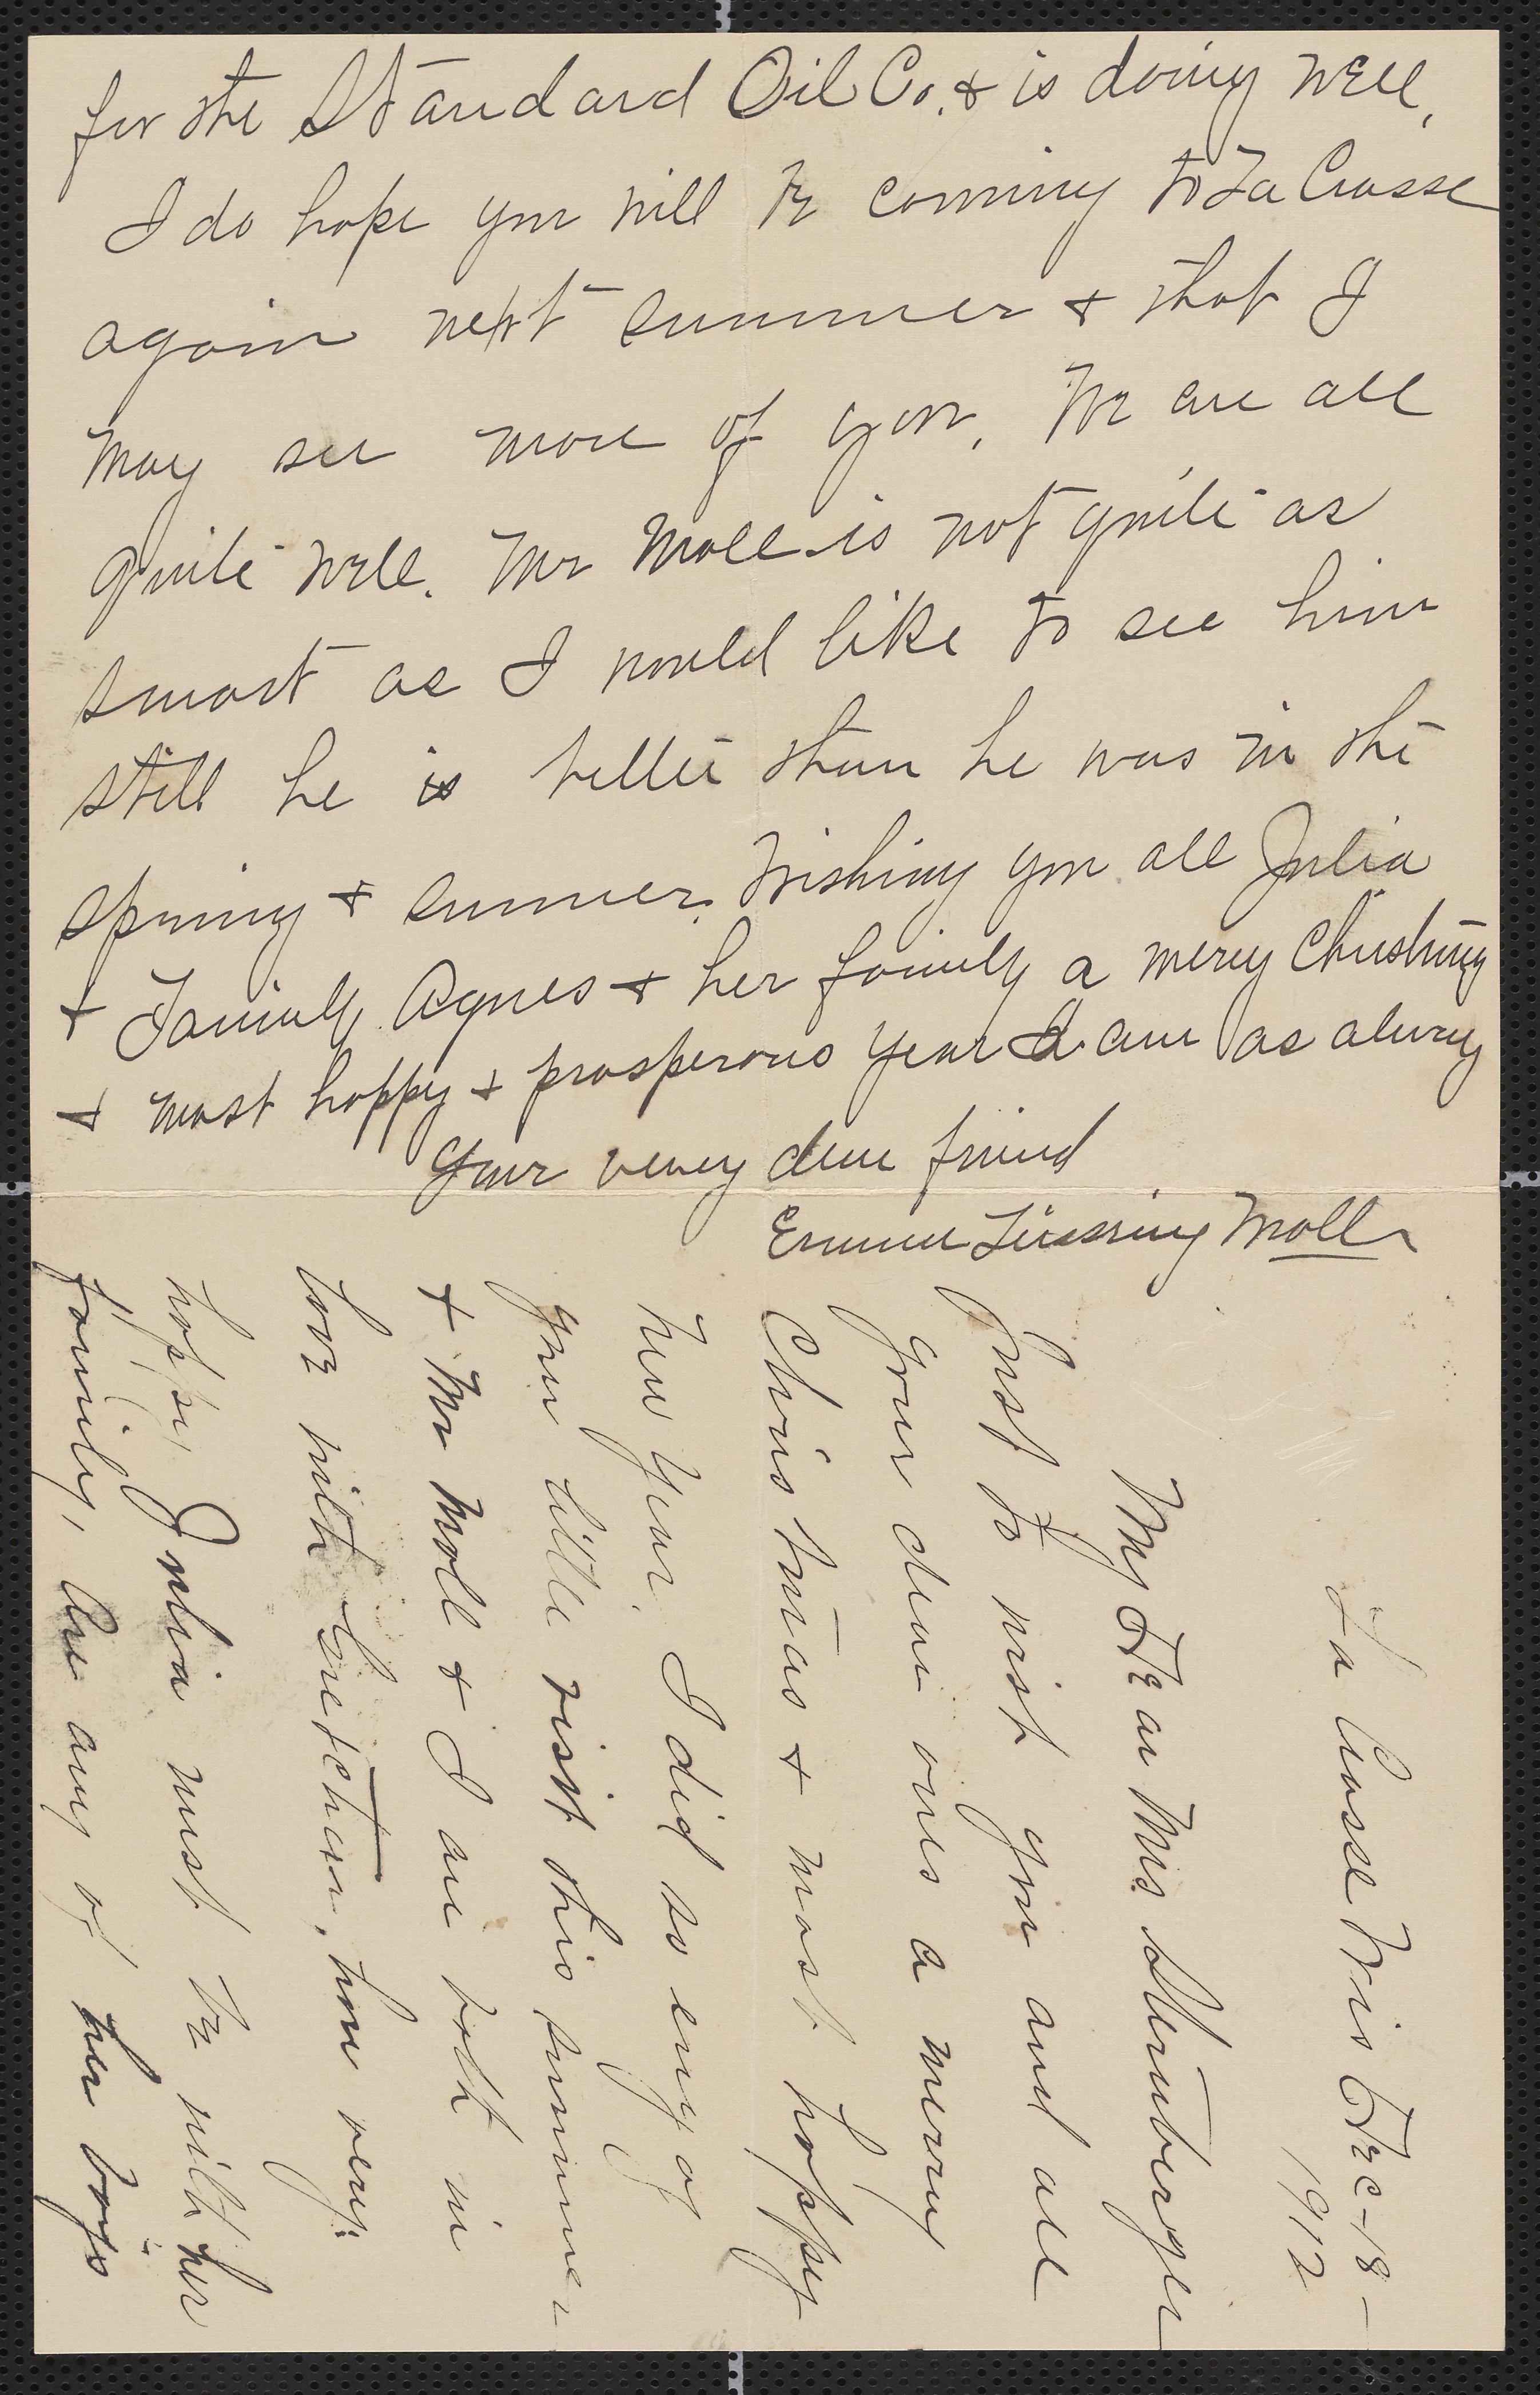 for the Standard Oil Co. & is doing well,
I do hope you will be coming to La Crosse
again next summer & that I
may see more of you, We are all
quite well. Mr Moll is not quite as
smart as I would like to see him
still he is better than he was in the
spring & summer. Wishing you all Julia
& Family. Agnes & her family a merry
& most happy & prosperous year I am as always
Your very dear friend
Emma Moll
La Crosse Wis Dec-18-
1912
My Dear Mrs
Just to wish you and all
your dear ones a merry
Christmas & most happy
New Year. I did so enjoy
your little visit this summer
& Mr Moll & I are both in
love with Gretchen, how very
happy Julia must be with her
family, are any of her boys